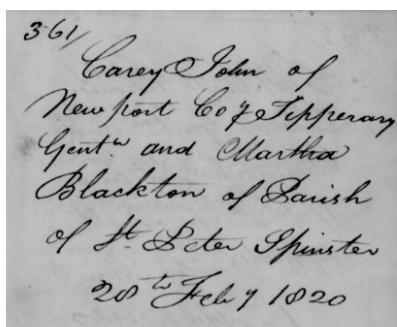 361/
Carey John of
Newport Co of Tipperary
Gentn and Martha
Blackton of Parish
of St Peter Spinster
28th Feby 1820